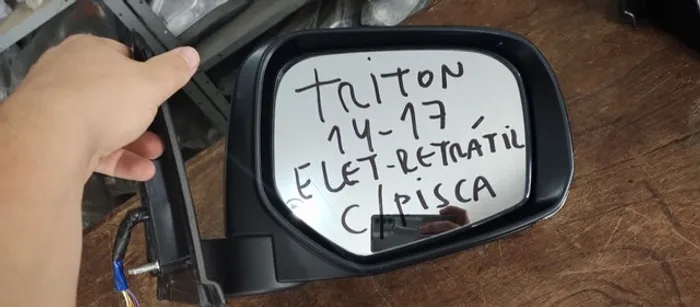 TRITON
14-17
ELET-RETRÁTIL
C/PISCA